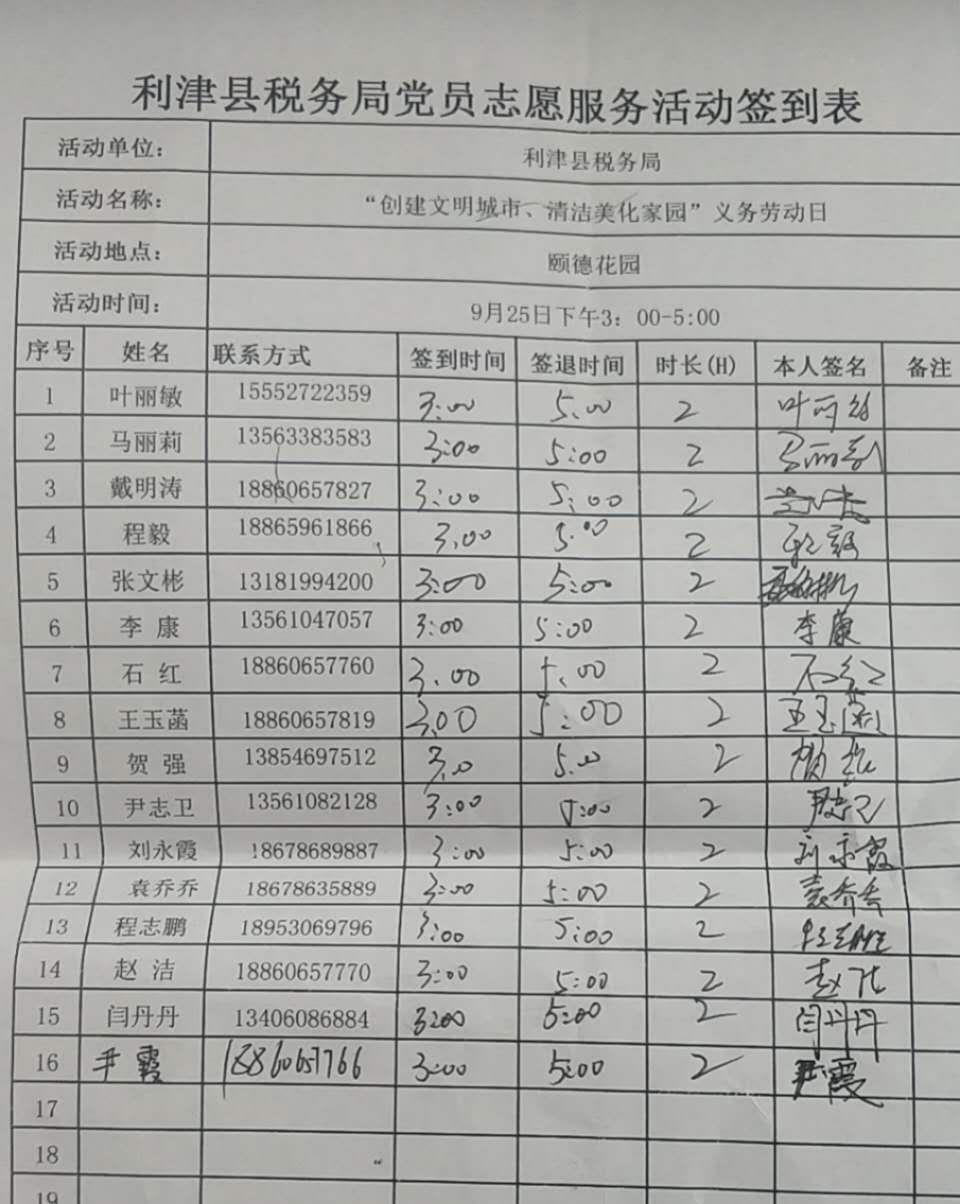 利津县税务局党员志愿服务活动签到表
活动单位： 利津县税务局
活动名称： “创建文明城市、清洁美化家园”义务劳动日
活动地点： 颐德花园
活动时间： 9月25日下午3：00-5:00
序号 姓名 联系方式 签到时间 签退时间 时长(H) 本人签名 备注
1 叶丽敏 15552722359 3:00 5.00 2 叶丽敏
2 马丽莉 13563383583 3:00 5:00 2 马丽莉
3 戴明涛 18860657827 3:00 5:00 2
4 程毅 18865961866 3.00 5:00 2 程毅
5 张文彬 13181994200 3:00 5:00 2
6 李 康 13561047057 3:00 5:00 2 李康
7 石 红 18860657760 3.00 5.00 2 石红
8 王玉菡 18860657819 3.00 5:00 2 王玉菡
9 贺 强 13854697512 3.00 5.00 2 贺强
10 尹志卫 13561082128 3:00 5:00 2 尹志卫
11 刘永霞 18678689887 3:00 5:00 2 刘永霞
12 袁乔乔 18678635889 3:00 5:00 2 袁乔乔
13 程志鹏 18953069796 3:00 5:00 2 程志鹏
14 赵 洁 18860657770 3:00 5:00 2 赵洁
15 闫丹丹 13406086884 3:00 5:00 2 闫丹丹
16 尹霞 18860657766 3:00 5:00 2 尹霞
17
18
19